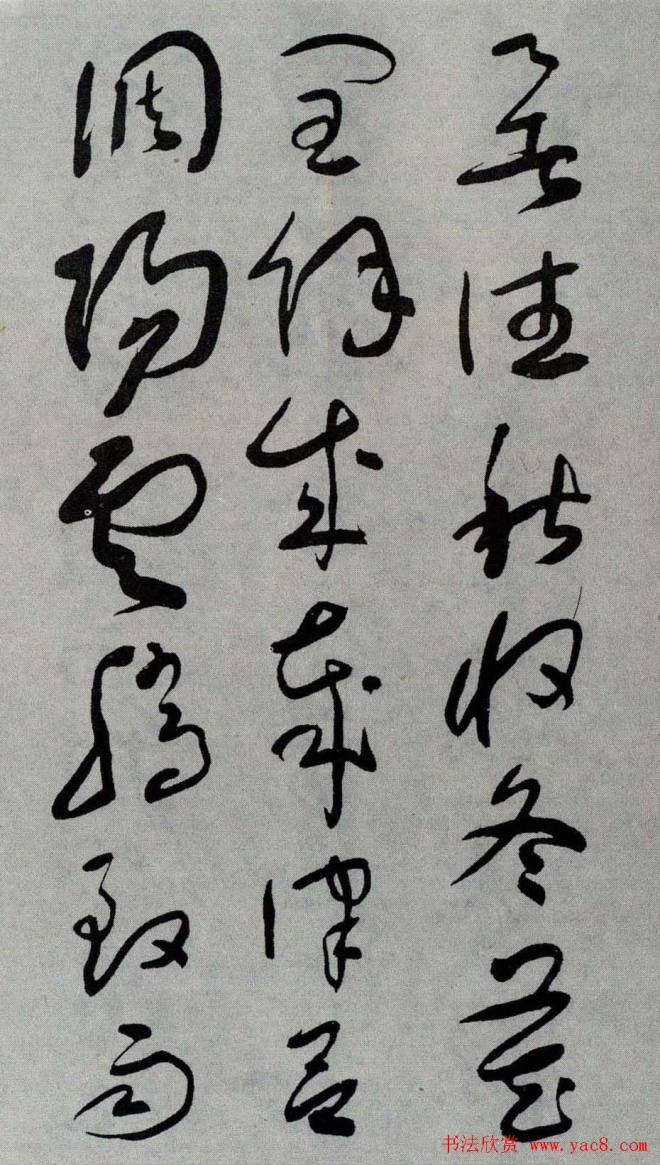 暑往秋收冬藏
闰余成岁律吕
调阳云腾致雨
书法欣赏 www.yac8.com